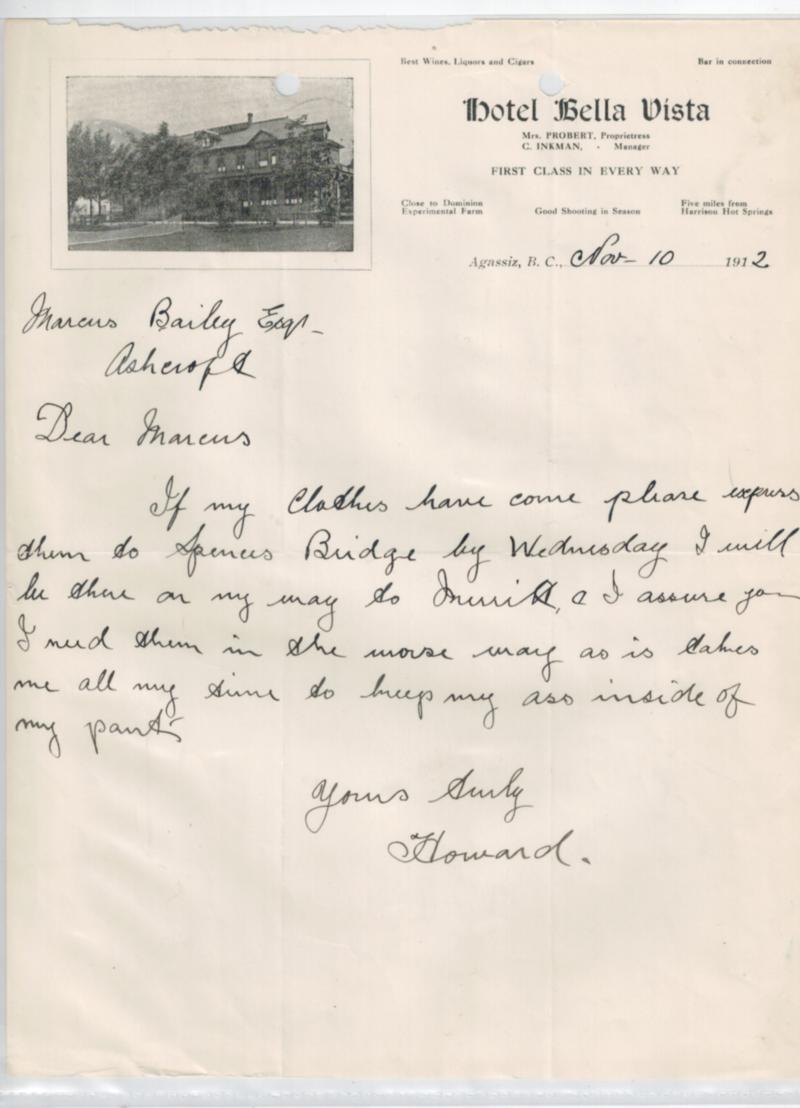 Best Wines, Liquors and Cigars Bar in connection
Hotel Bella Vista
Mrs. PROBERT, Proprietress
C. INKMAN, - Manager
FIRST CLASS IN EVERY WAY
Close to Dominion
Experimental Farm
Good Shooting in Season
Five miles from
Harrison Hot Springs
Agassiz, B. C., Nov- 10 1912
Marcus Bailey Esqr-
Ashcroft
Dear Marcus
If my Clothes have come please express
them to Spences Bridge by Wednesday I will
be there on my way to Merritt, & I assure you
I need them in the worse way as is takes
me all my time to keep my ass inside of
my pants
Yours
Howard.